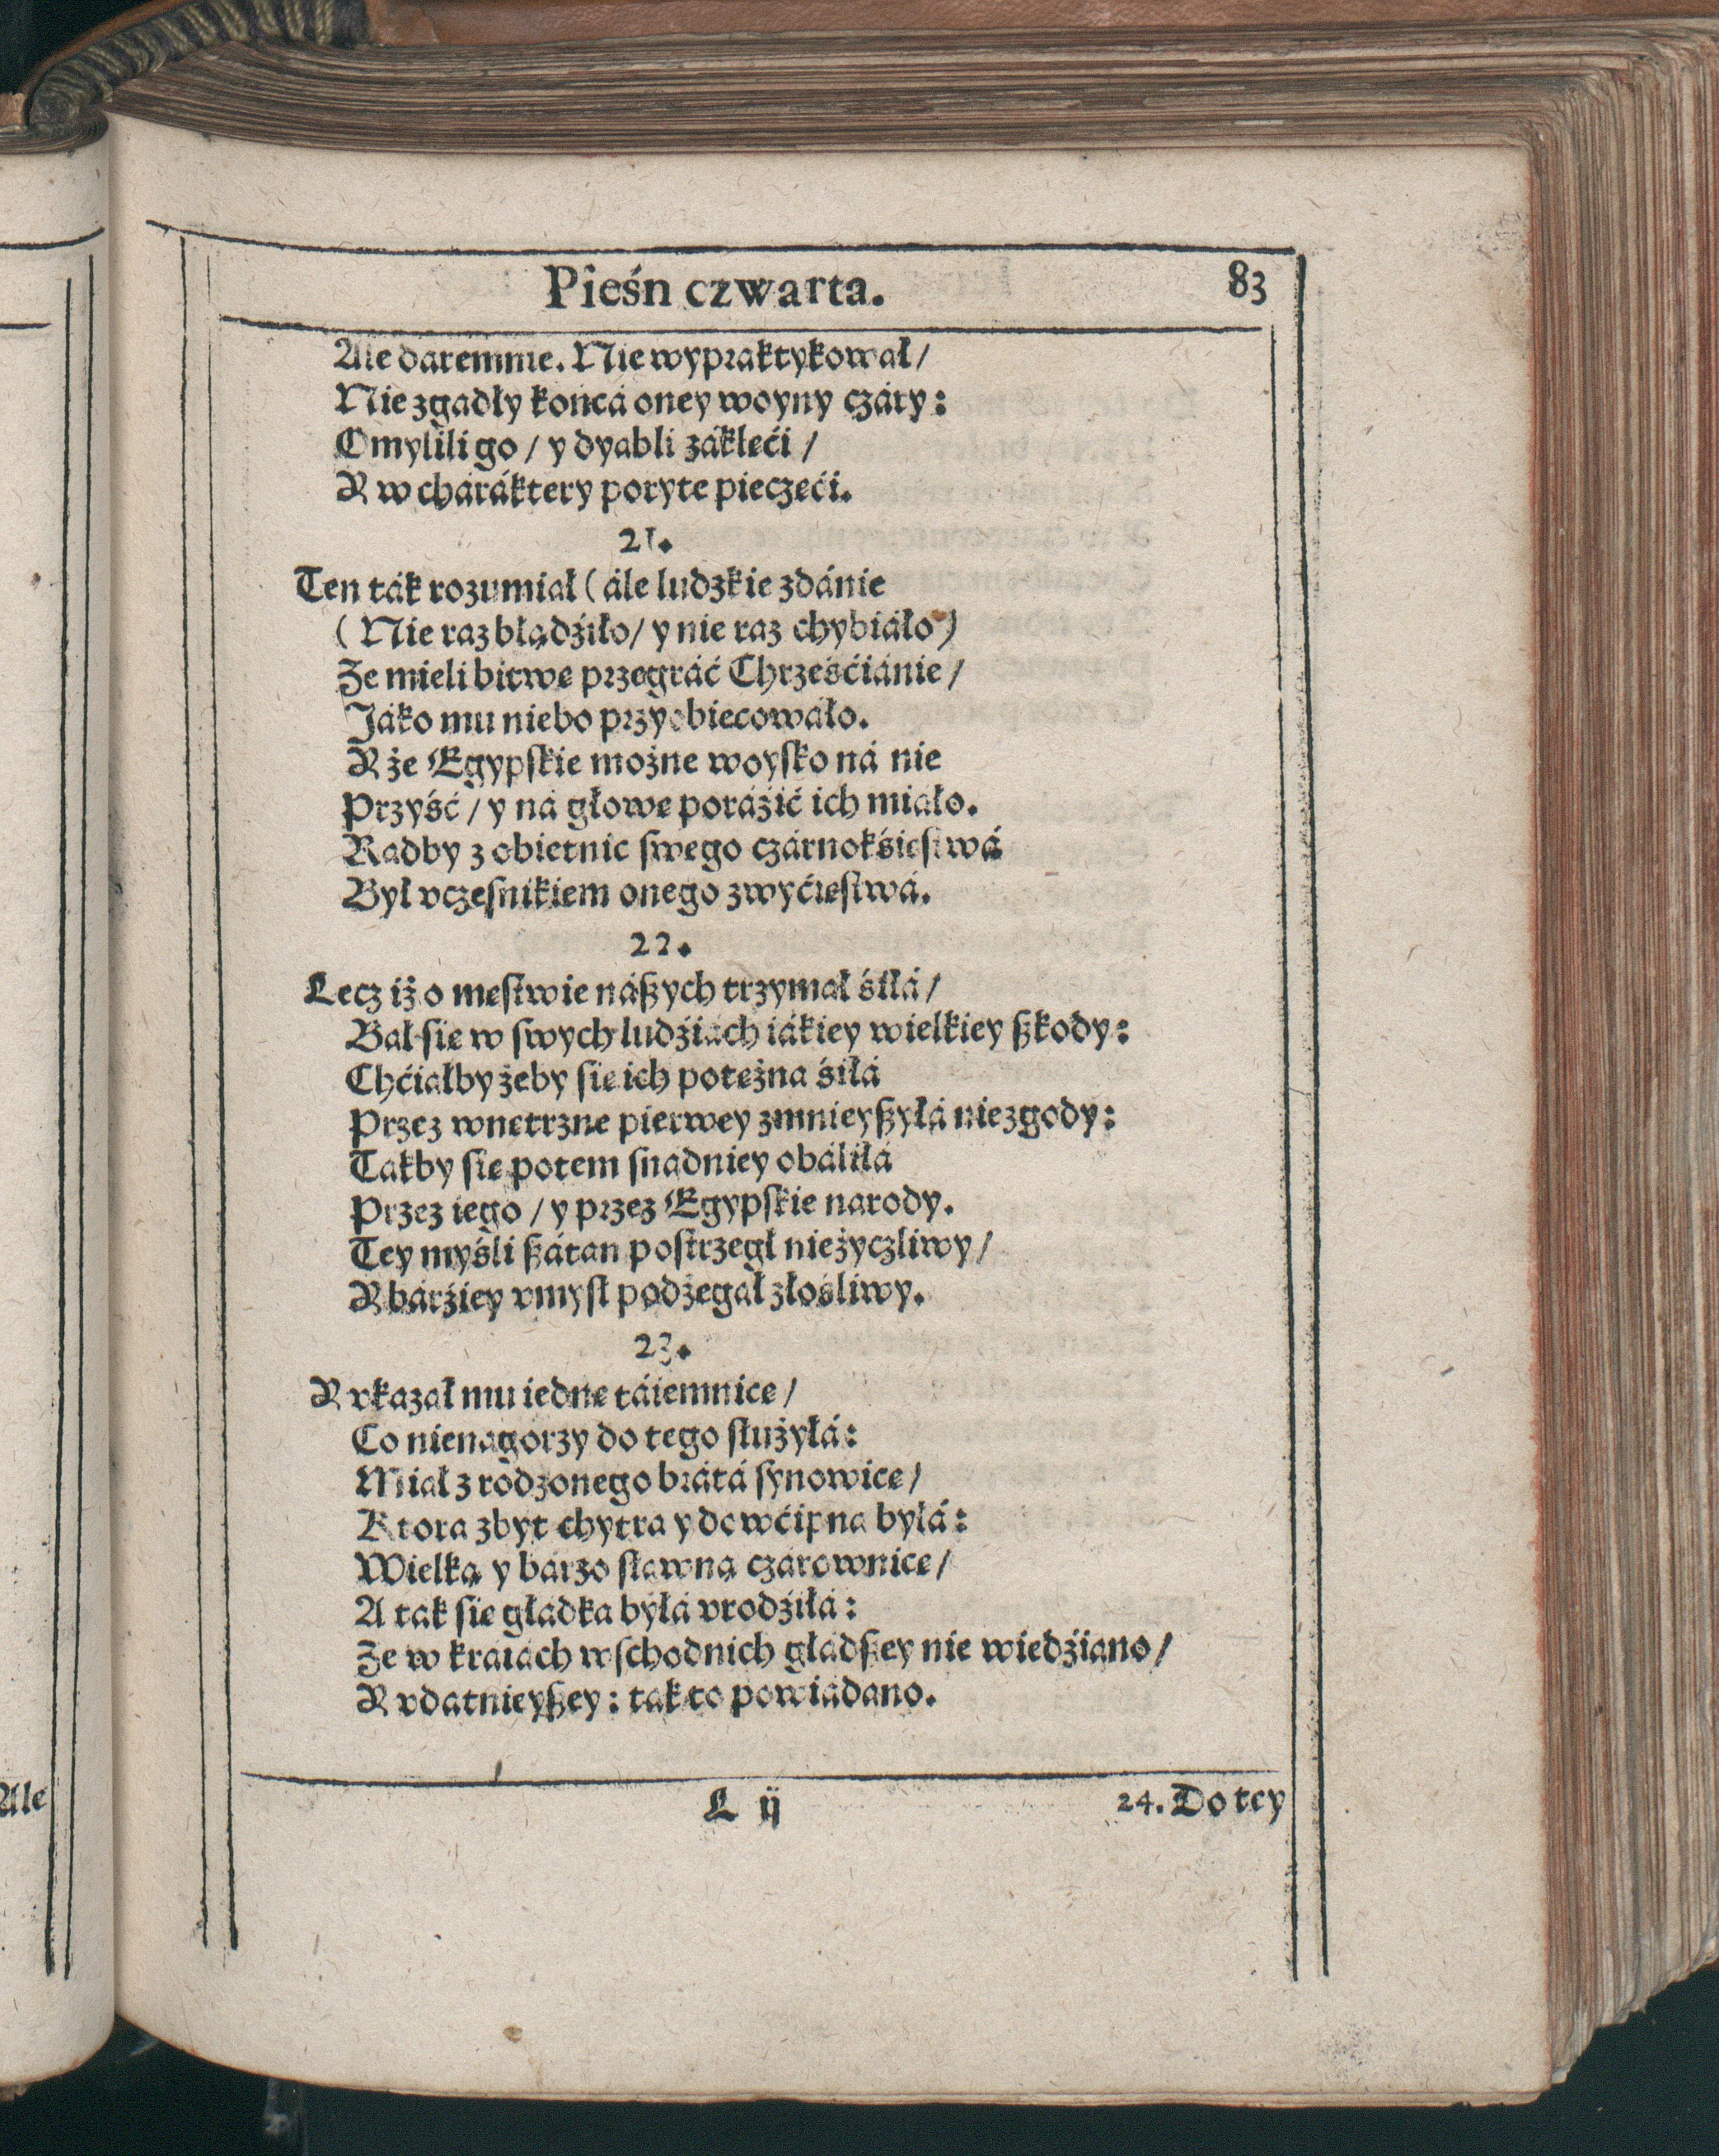 Pieśń czwarta.
83
Ale dáremnie. Nie wypraktykował/
Nie zgadły końcá oney woyny czáry:
Omylili go/ y dyabli zákleći/
Y w cháráktery poryte pieczeći.
21.
Ten ták rozumiał (ále ludzkie zdánie
(Nie raz błądźiło/ y nie raz chybiáło)
Że mieli bitwe przegráć Chrześćiánie/
Jáko mu niebo przyobiecowáło.
Y że Egypſkie możne woyſko ná nie
Przyść/ y ná głowe poráźić ich miáło.
Radby z obietnic ſwego czárnokśieſtwá
Był vczeſnikiem onego zwyćieſtwá.
22.
Lecz iż o meſtwie náßych trzymał śiłá/
Bał ſie w ſwych ludźiách iákiey wielkiey ßkody:
Chćiałby żeby ſie ich poteżna śiłá
Przez wnetrzne pierwey zmnieyßyłá niezgody:
Takby ſie potem ſnadniey obáliłá
Przez iego/ y przez Egypſkie narody.
Tey myśli ßátan poſtrzegł nieżyczliwy/
Y bárźiey vmyſł podżegał złośliwy.
23.
Y vkazał mu iedne táiemnice/
Co nienagorzy do tego ſłużyłá:
Miał z rodzonego brátá ſynowice/
Ktora zbyt chytra y dowćipna byłá:
Wielką y bárzo ſławną czárownice/
A tak ſie gładka byłá vrodźiłá:
Że w kraiách wſchodnich głádßey nie wiedźiano/
Y vdatnieyßey: tak to powiádano.
L ij
24. Do tey
Ale